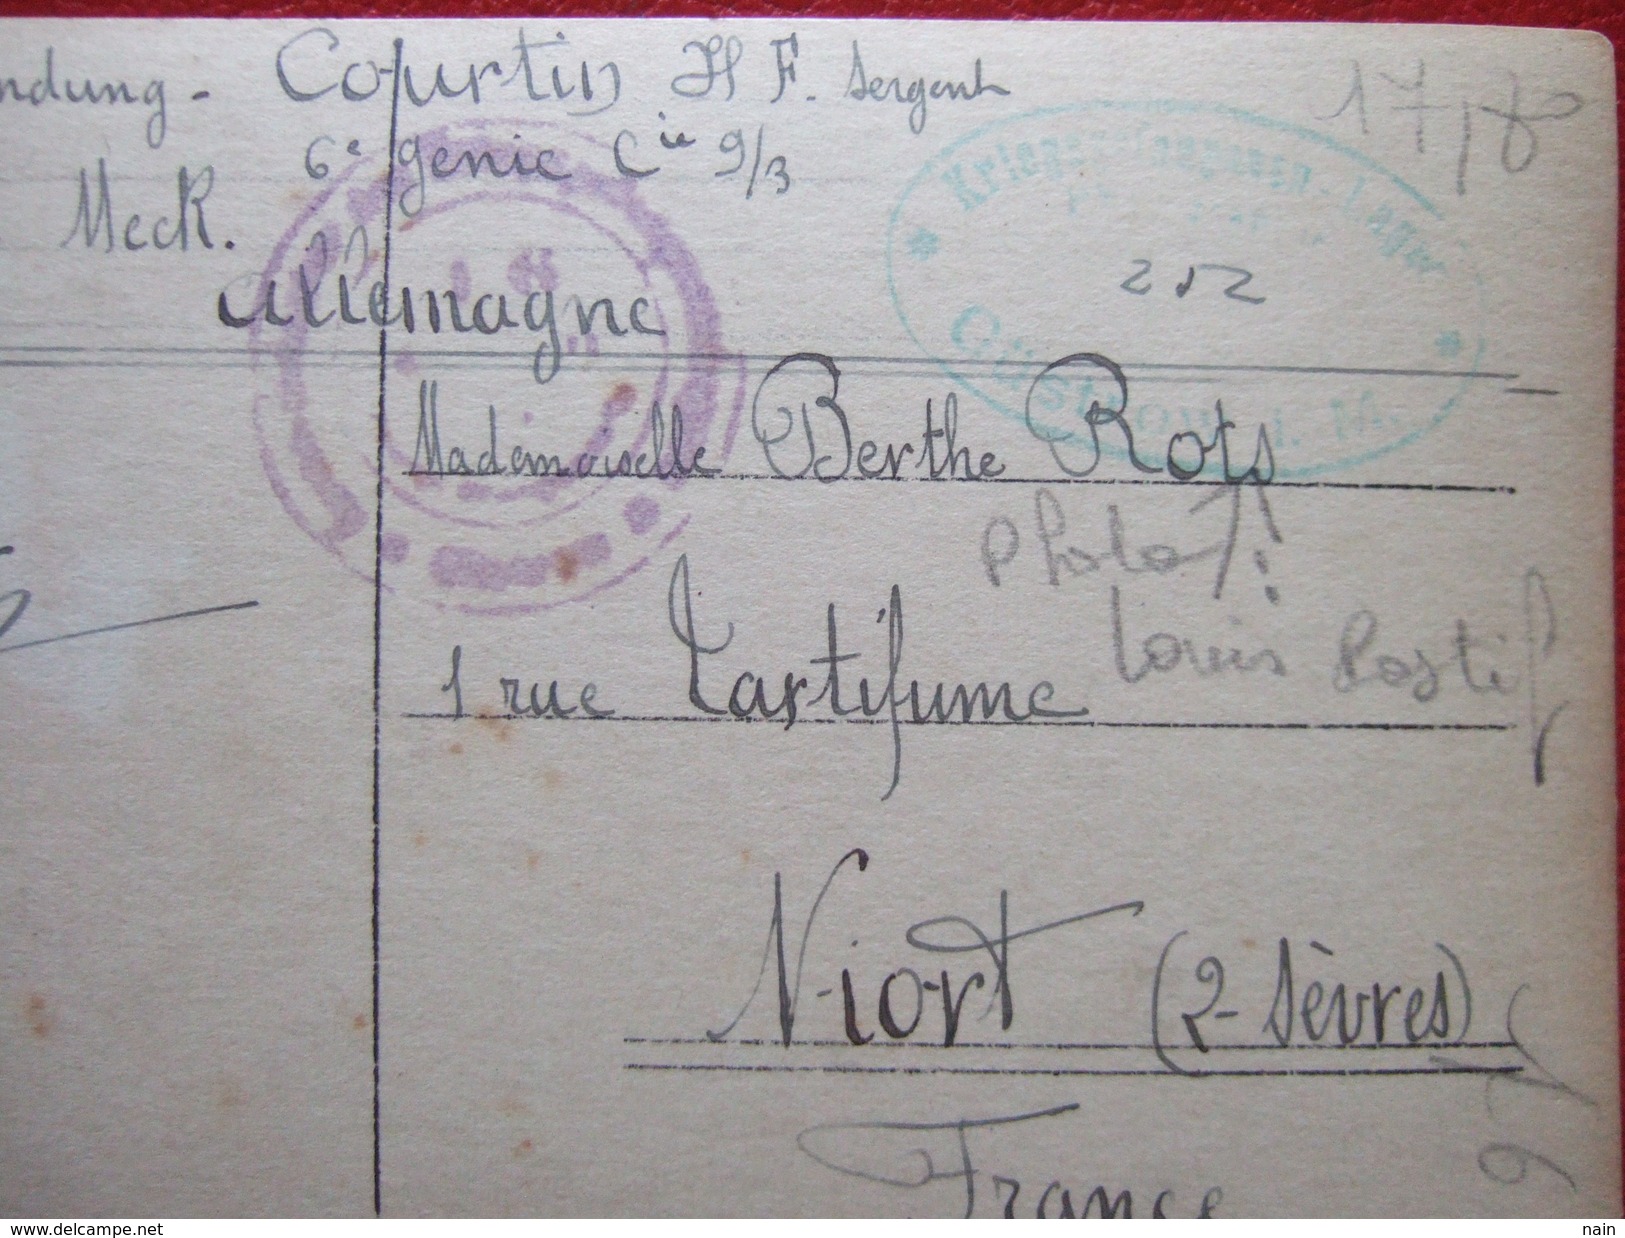 ndung - Courtin H F. Sergent
6e génie Cie 9/3
Meck.
Allemagne
Kriegsgefangenen-Lager
Güstrow i. M.
252
Mademoiselle Berthe Rots
Photo
Louis Postif
1 rue Tartifume
Niort (2-Sèvres)
France
www.delcampe.net
nain